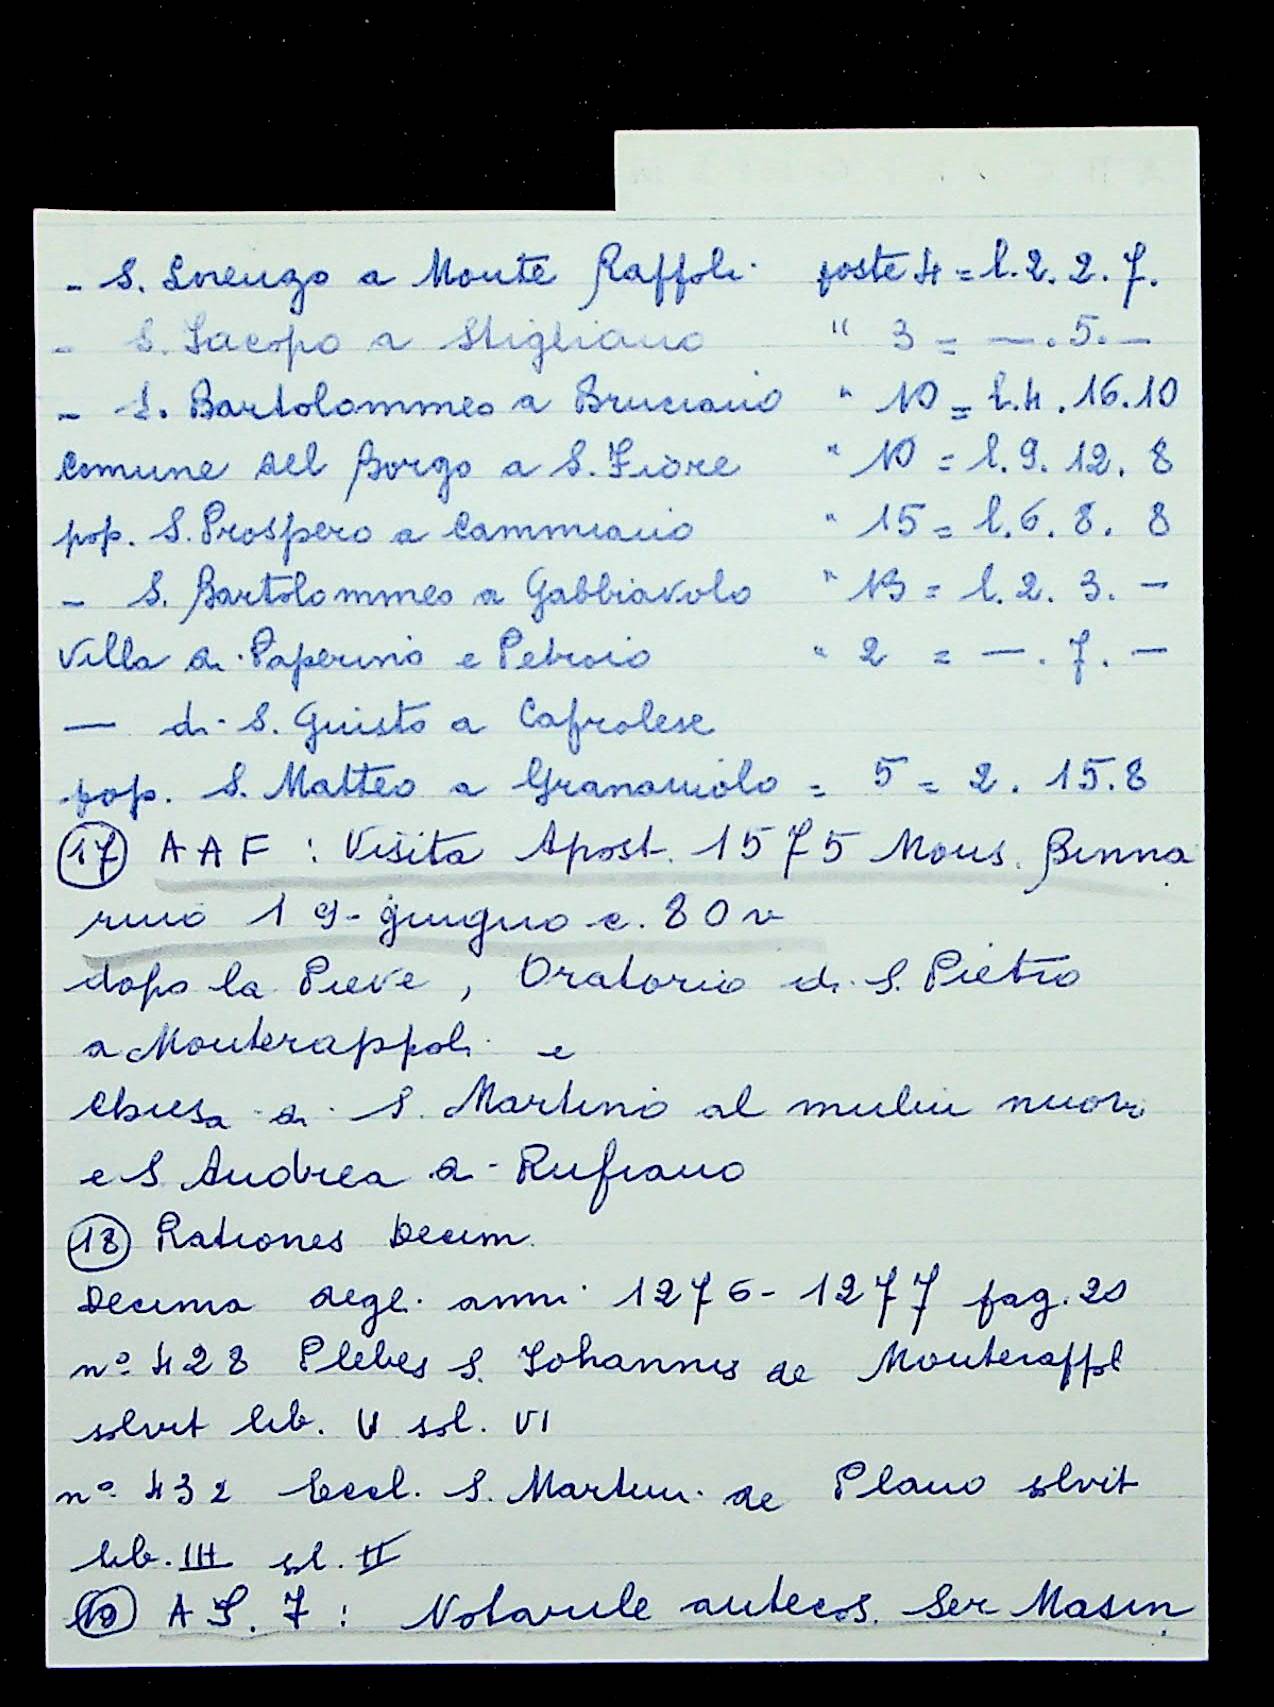 - S. Lorenzo a Monte Raffoli poste 4 = l. 2. 2. 7.
- S. Jacopo a Stigliano " 3 = —. 5. —
- S. Bartolommeo a Bruciano " 10 = l. 4. 16. 10
Comune del Borgo a S. Fiore " 10 = l. 9. 12. 8
pop. S. Prospero a Cammiano " 15 = l. 6. 8. 8
- S. Bartolommeo a Gabbiavolo " 13 = l. 2. 3. —
Villa di Paperino e Petroio " 2 = —. 7. —
— di S. Giusto a Caprolese
pop. S. Matteo a Granaiolo = 5 = 2. 15. 8
17 AAF : Visita Apost. 1575 Mons. Binna
rino 19 giugno c. 80 v
dopo la Pieve, Oratorio di S. Pietro
a Monterappoli e
Chiesa di S. Martino al mulin nuovo
e S Andrea a Rufiano
18 Rationes Decim.
Decima degli anni 1276-1277 pag. 20
n° 428 Plebes S. Johannis de Monterappl
solvit lib. V sol. VI
n° 432 Eccl. S. Martini de Plano solvit
lib. III sol. II
19 A S. F : Notarile antecos. Ser Masin